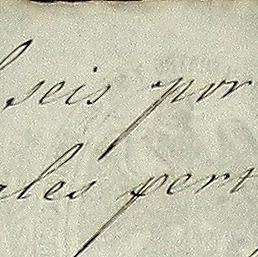 seis por
ales pert